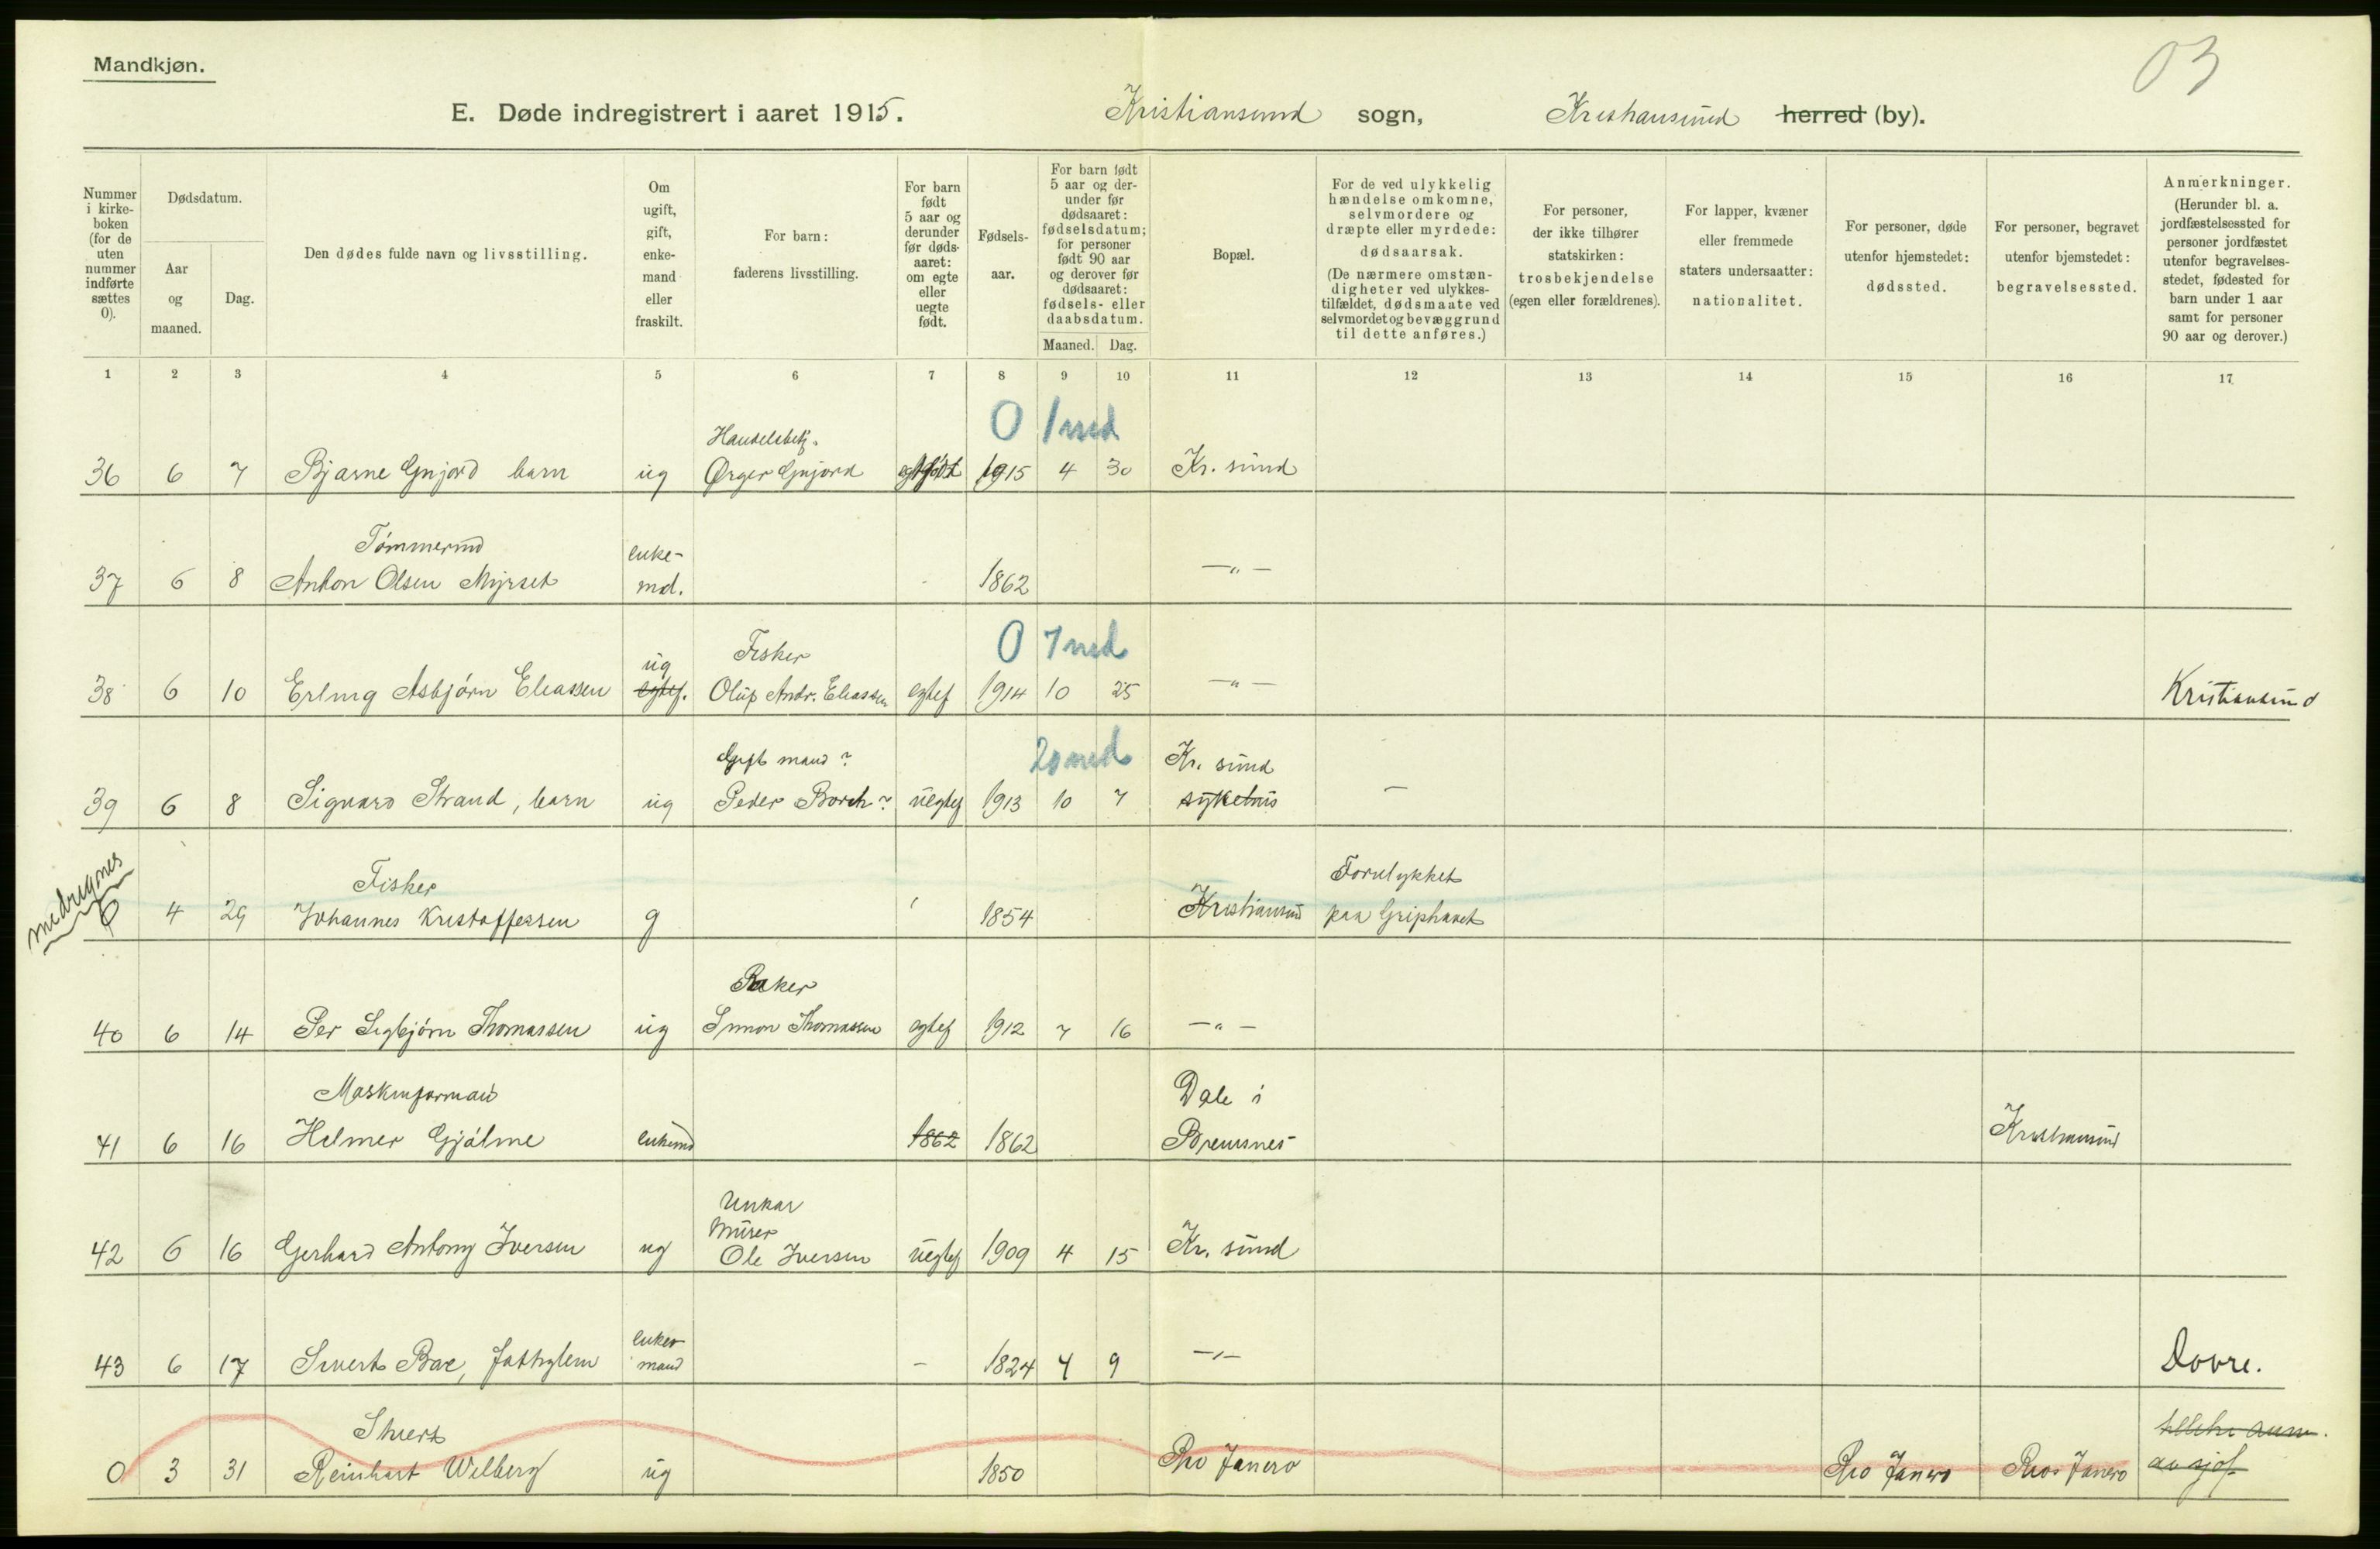 Mandkjøn.
03
E. Døde indregistrert i aaret 1915. Kristiansund sogn, Kristiansund herred (by).
Nummer i kirke-boken (for de uten nummer indførte sættes 0).
Dødsdatum.
Aar og maaned.
Dag.
Den dødes fulde navn og livsstilling.
Om ugift, gift, enke-mand eller fraskilt.
For barn: faderens livsstilling.
For barn født 5 aar og derunder før døds-aaret: om egte eller uegte født.
Fødsels-aar.
For barn født 5 aar og der-under før dødsaaret: fødselsdatum; for personer født 90 aar og derover før dødsaaret: fødsels- eller daabsdatum.
Maaned. Dag.
Bopæl.
For de ved ulykkelig hændelse omkomne, selvmordere og dræpte eller myrdede: dødsaarsak. (De nærmere omstæn-digheter ved ulykkes-tilfældet, dødsmaate ved selvmordet og bevæggrund til dette anføres.)
For personer, der ikke tilhører statskirken: trosbekjendelse (egen eller forældrenes).
For lapper, kvæner eller fremmede staters undersaatter: nationalitet.
For personer, døde utenfor hjemstedet: dødssted.
For personer, begravet utenfor hjemstedet: begravelsessted.
Anmerkninger. (Herunder bl. a. jordfæstelsessted for personer jordfæstet utenfor begravelses-stedet, fødested for barn under 1 aar samt for personer 90 aar og derover.)
1 2 3 4 5 6 7 8 9 10 11 12 13 14 15 16 17
0 1 md
Handelsbetj.
36 6 7 Bjarne Gujord barn ug Ørger Gujord egtefødt 1915 4 30 Kr. sund
Tømmermd enke-
37 6 8 Anton Olsen Myrset md. 1862 —"—
0 7 md
ug Fisker
38 6 10 Erling Asbjørn Eleassen egtef. Oluf Andr. Eleassen egtef 1914 10 25 —"— Kristiansund
20 md
Gift mand? Kr. sund
39 6 8 Sigvard Strand, barn ug Peder Borch? uegtef 1913 10 7 sykehus —
medregnes
Fisker Forulykket
0 4 29 Johannes Kristoffersen g 1854 Kristiansund paa Griphavet
Baker
40 6 14 Per Sigbjørn Thomassen ug Simon Thomassen egtef 1912 7 16 —"—
Maskinformand Dale i
41 6 16 Helmer Gjølme enkemd 1862 1862 Bremsnes Kristiansund
Unkar
Murer
42 6 16 Gerhard Antony Iversen ug Ole Iversen uegtef 1909 4 15 Kr. sund
enke-
43 6 17 Sivert Bae, fattiglem mand — 1824 4 9 —"— Dovre.
Stuert
0 3 31 Reinhart Wilberg ug 1850 Rio Janero Rio Janero Rio Janero av sjof.